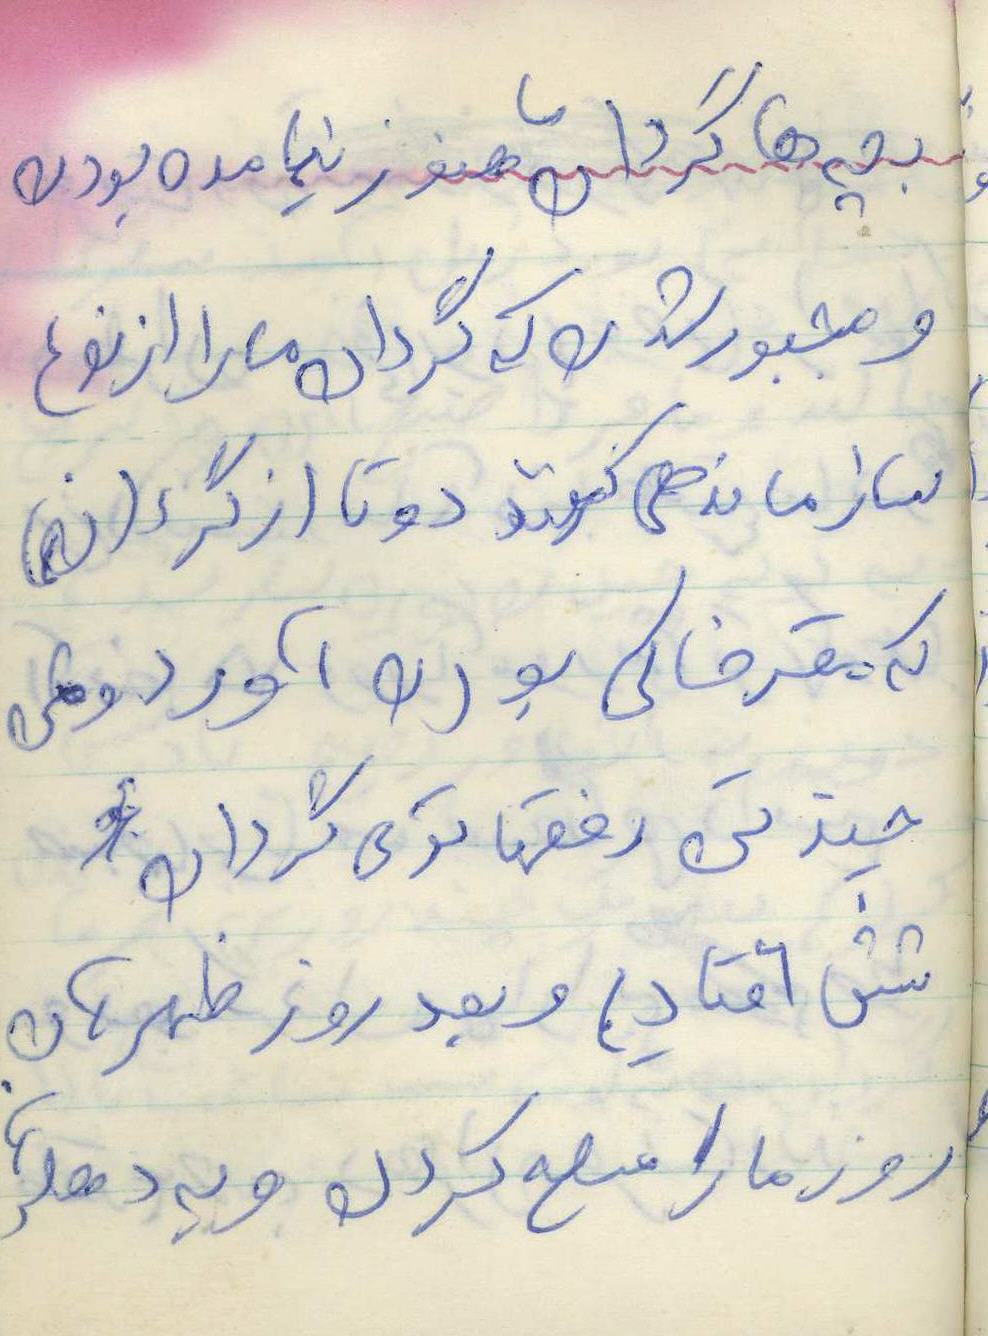 بچه ها گردان ما هنوز نیامده بودن
و مجبور شدن که گردان ما را از نوع
سازماندهی کنند دوتا از گردان
که مقر خاکی بودن آورد و می
چند تی رفقها توی گردان
شش افتادیم و بعد روز ظهر آن
روز ما را مسلح کردن و به دهلر